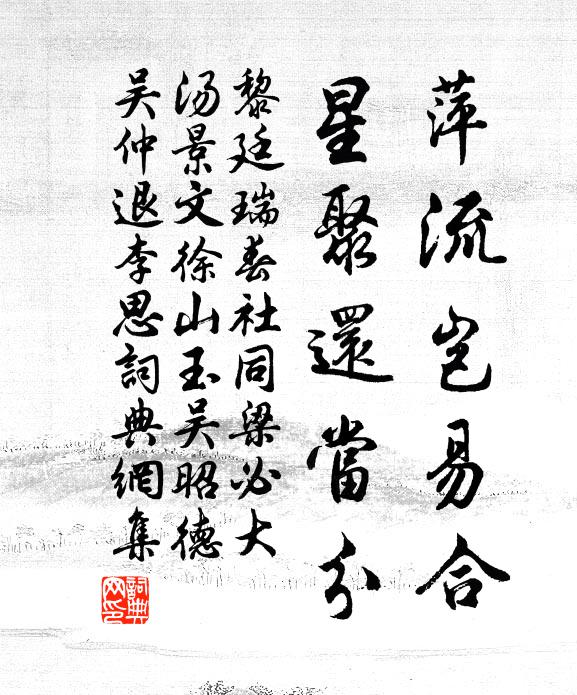 萍流岂易合
星聚還當分
黎廷瑞春社同梁必大
汤景文徐山玉吴昭德
吴仲退李思詞典網集
詞典网印